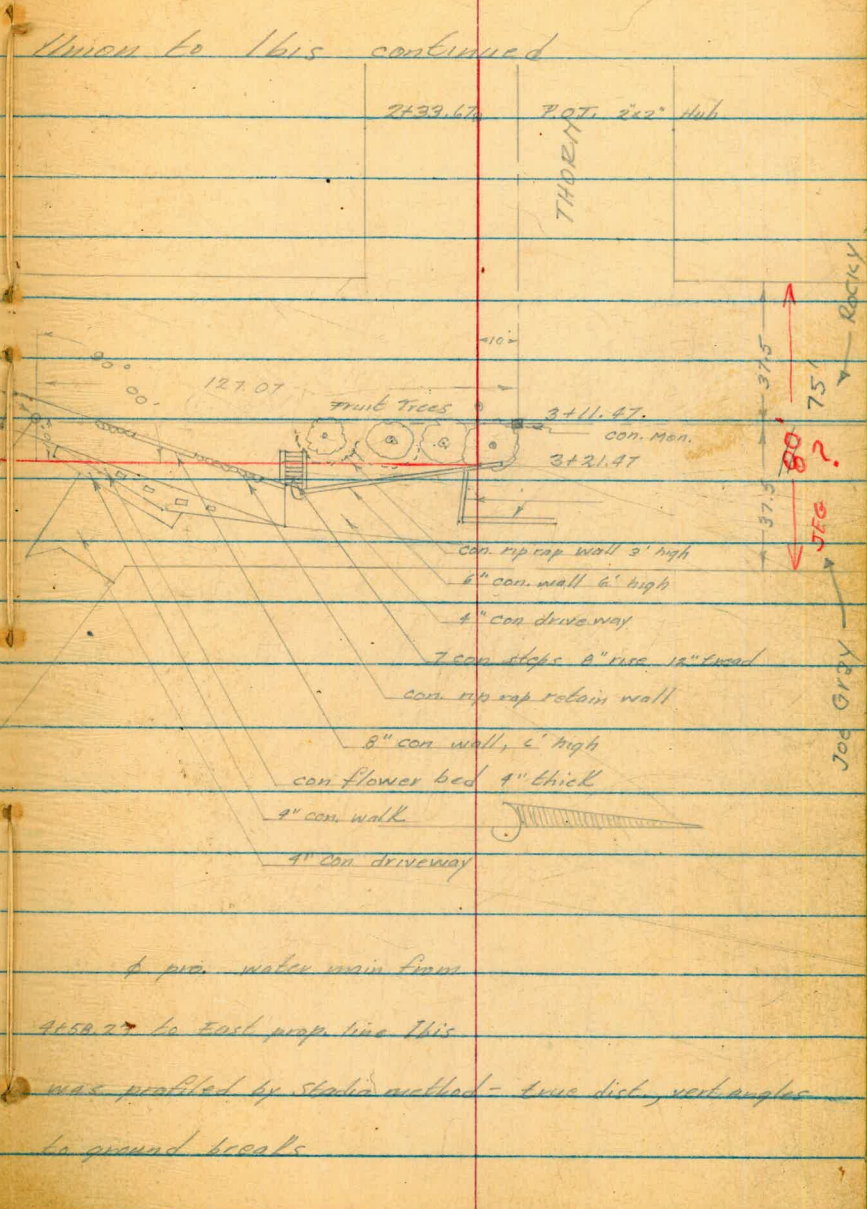 Union to Ibis continued
2+33.67 P.O.T. 2"x2" Hub
THORN
ROCKY
10'
37.5
75'
90°
127.07
Fruit Trees
3+11.47
con. mon.
3+21.47
80'
JEG ?
37.5
con. rip rap wall 3' high
6" con. wall 6' high
4" con driveway
7 con steps 8" rise 12" tread
con. rip rap retain wall
Joe Gray
8" con wall, 6' high
con flower bed 4" thick
4" con. walk
4" con driveway
pro. water main from
4+58.27 to East prop. line Ibis
was profiled by Stadia method - true dist., vert angles
to ground breaks